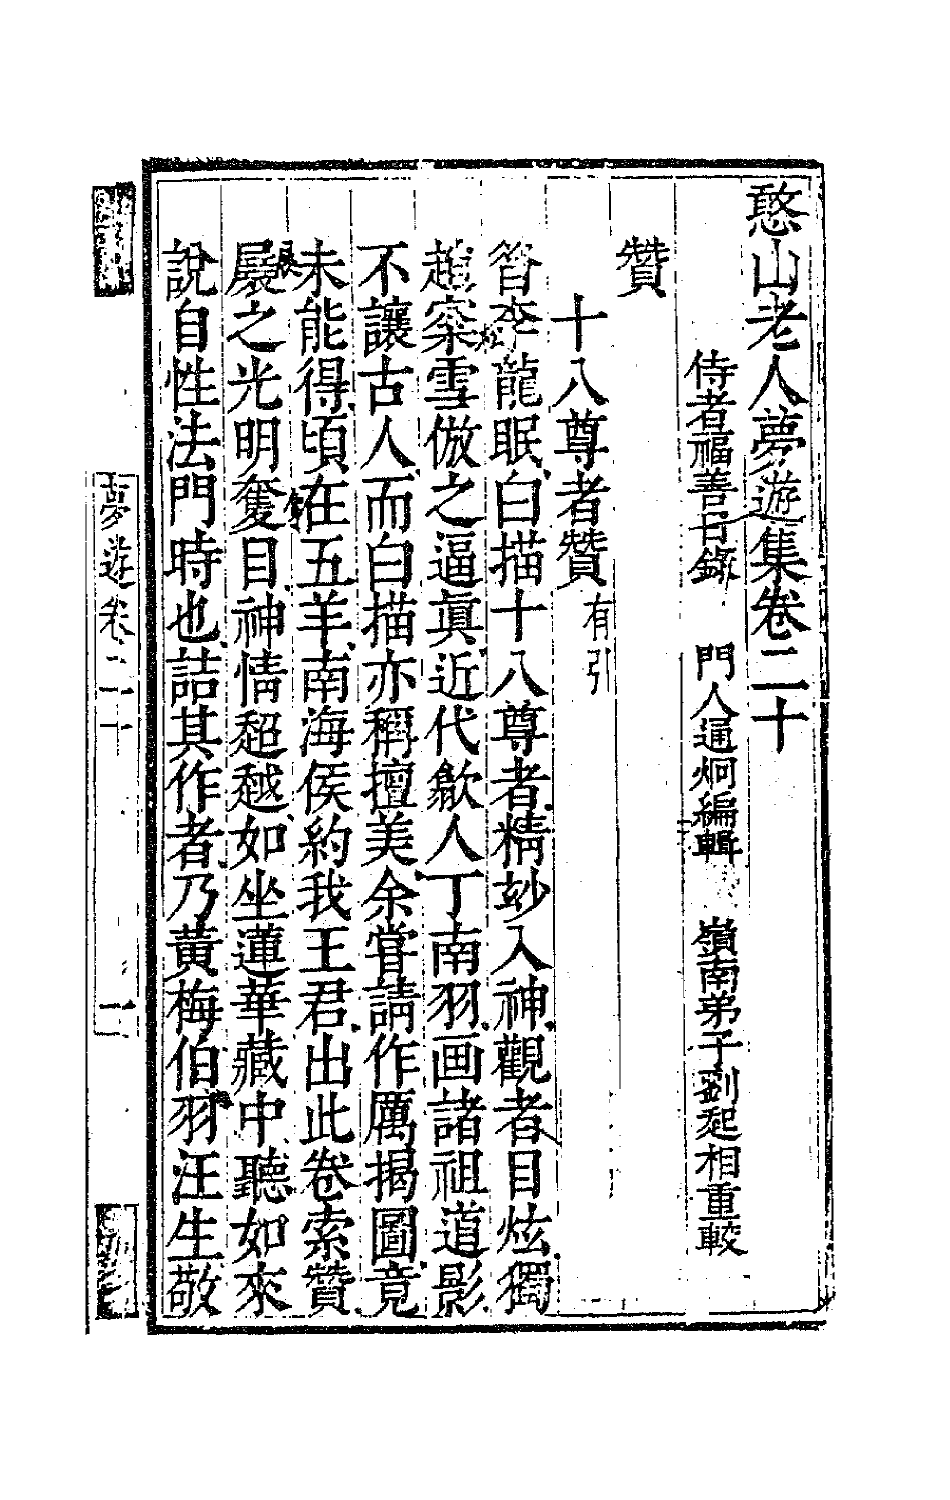 憨山老人夢遊集卷二十
侍者福善日錄 門人通炯編輯 嶺南弟子劉起相重較
贊
十八尊者贊有引
昝李龍眠白描十八尊者精玅入神觀者目炫獨
趙寀雪倣之逼眞近代歙人丁南羽画諸祖道影
不讓古人而白描亦稱擅美余嘗請作厲揭圖竟
未能得頃在五羊南海侯約我王君出此卷索贊
展之光明奪目神情超越如坐蓮華藏中聽如來
說自性法門時也詰其作者乃黃梅伯羽汪生敬
夢遊卷二十
一